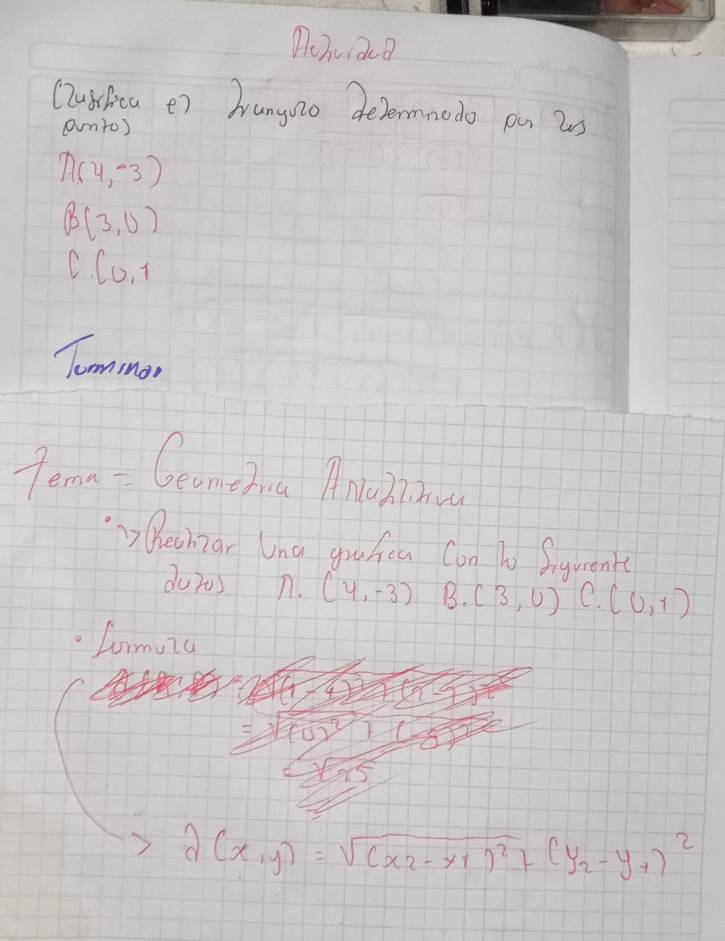 Actividad
Clasifica el triangulo determinado por los
puntos
A(4,-3)
B(3,0)
C.(0,1
Terminar
Tema = Geometria Analitica
Realizar una grafica con lo siguiente
datos A.(4,-3) B.(3,0) C.(0,1)
• formula
d(x,y) = √(x2-x1)²+(y2-y1)²